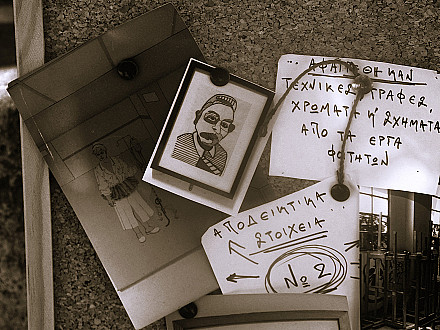 ΑΦΑΙΡΕΘΗΚΑΝ
ΤΕΧΝΙΚΕΣ ΓΡΑΦΕΣ,
ΧΡΩΜΑΤΑ Ή ΣΧΗΜΑΤΑ
ΑΠΟ ΤΑ ΕΡΓΑ
ΦΟΙΤΗΤΩΝ
ΑΠΟΔΕΙΚΤΙΚΑ
ΣΤΟΙΧΕΙΑ
Νο 2